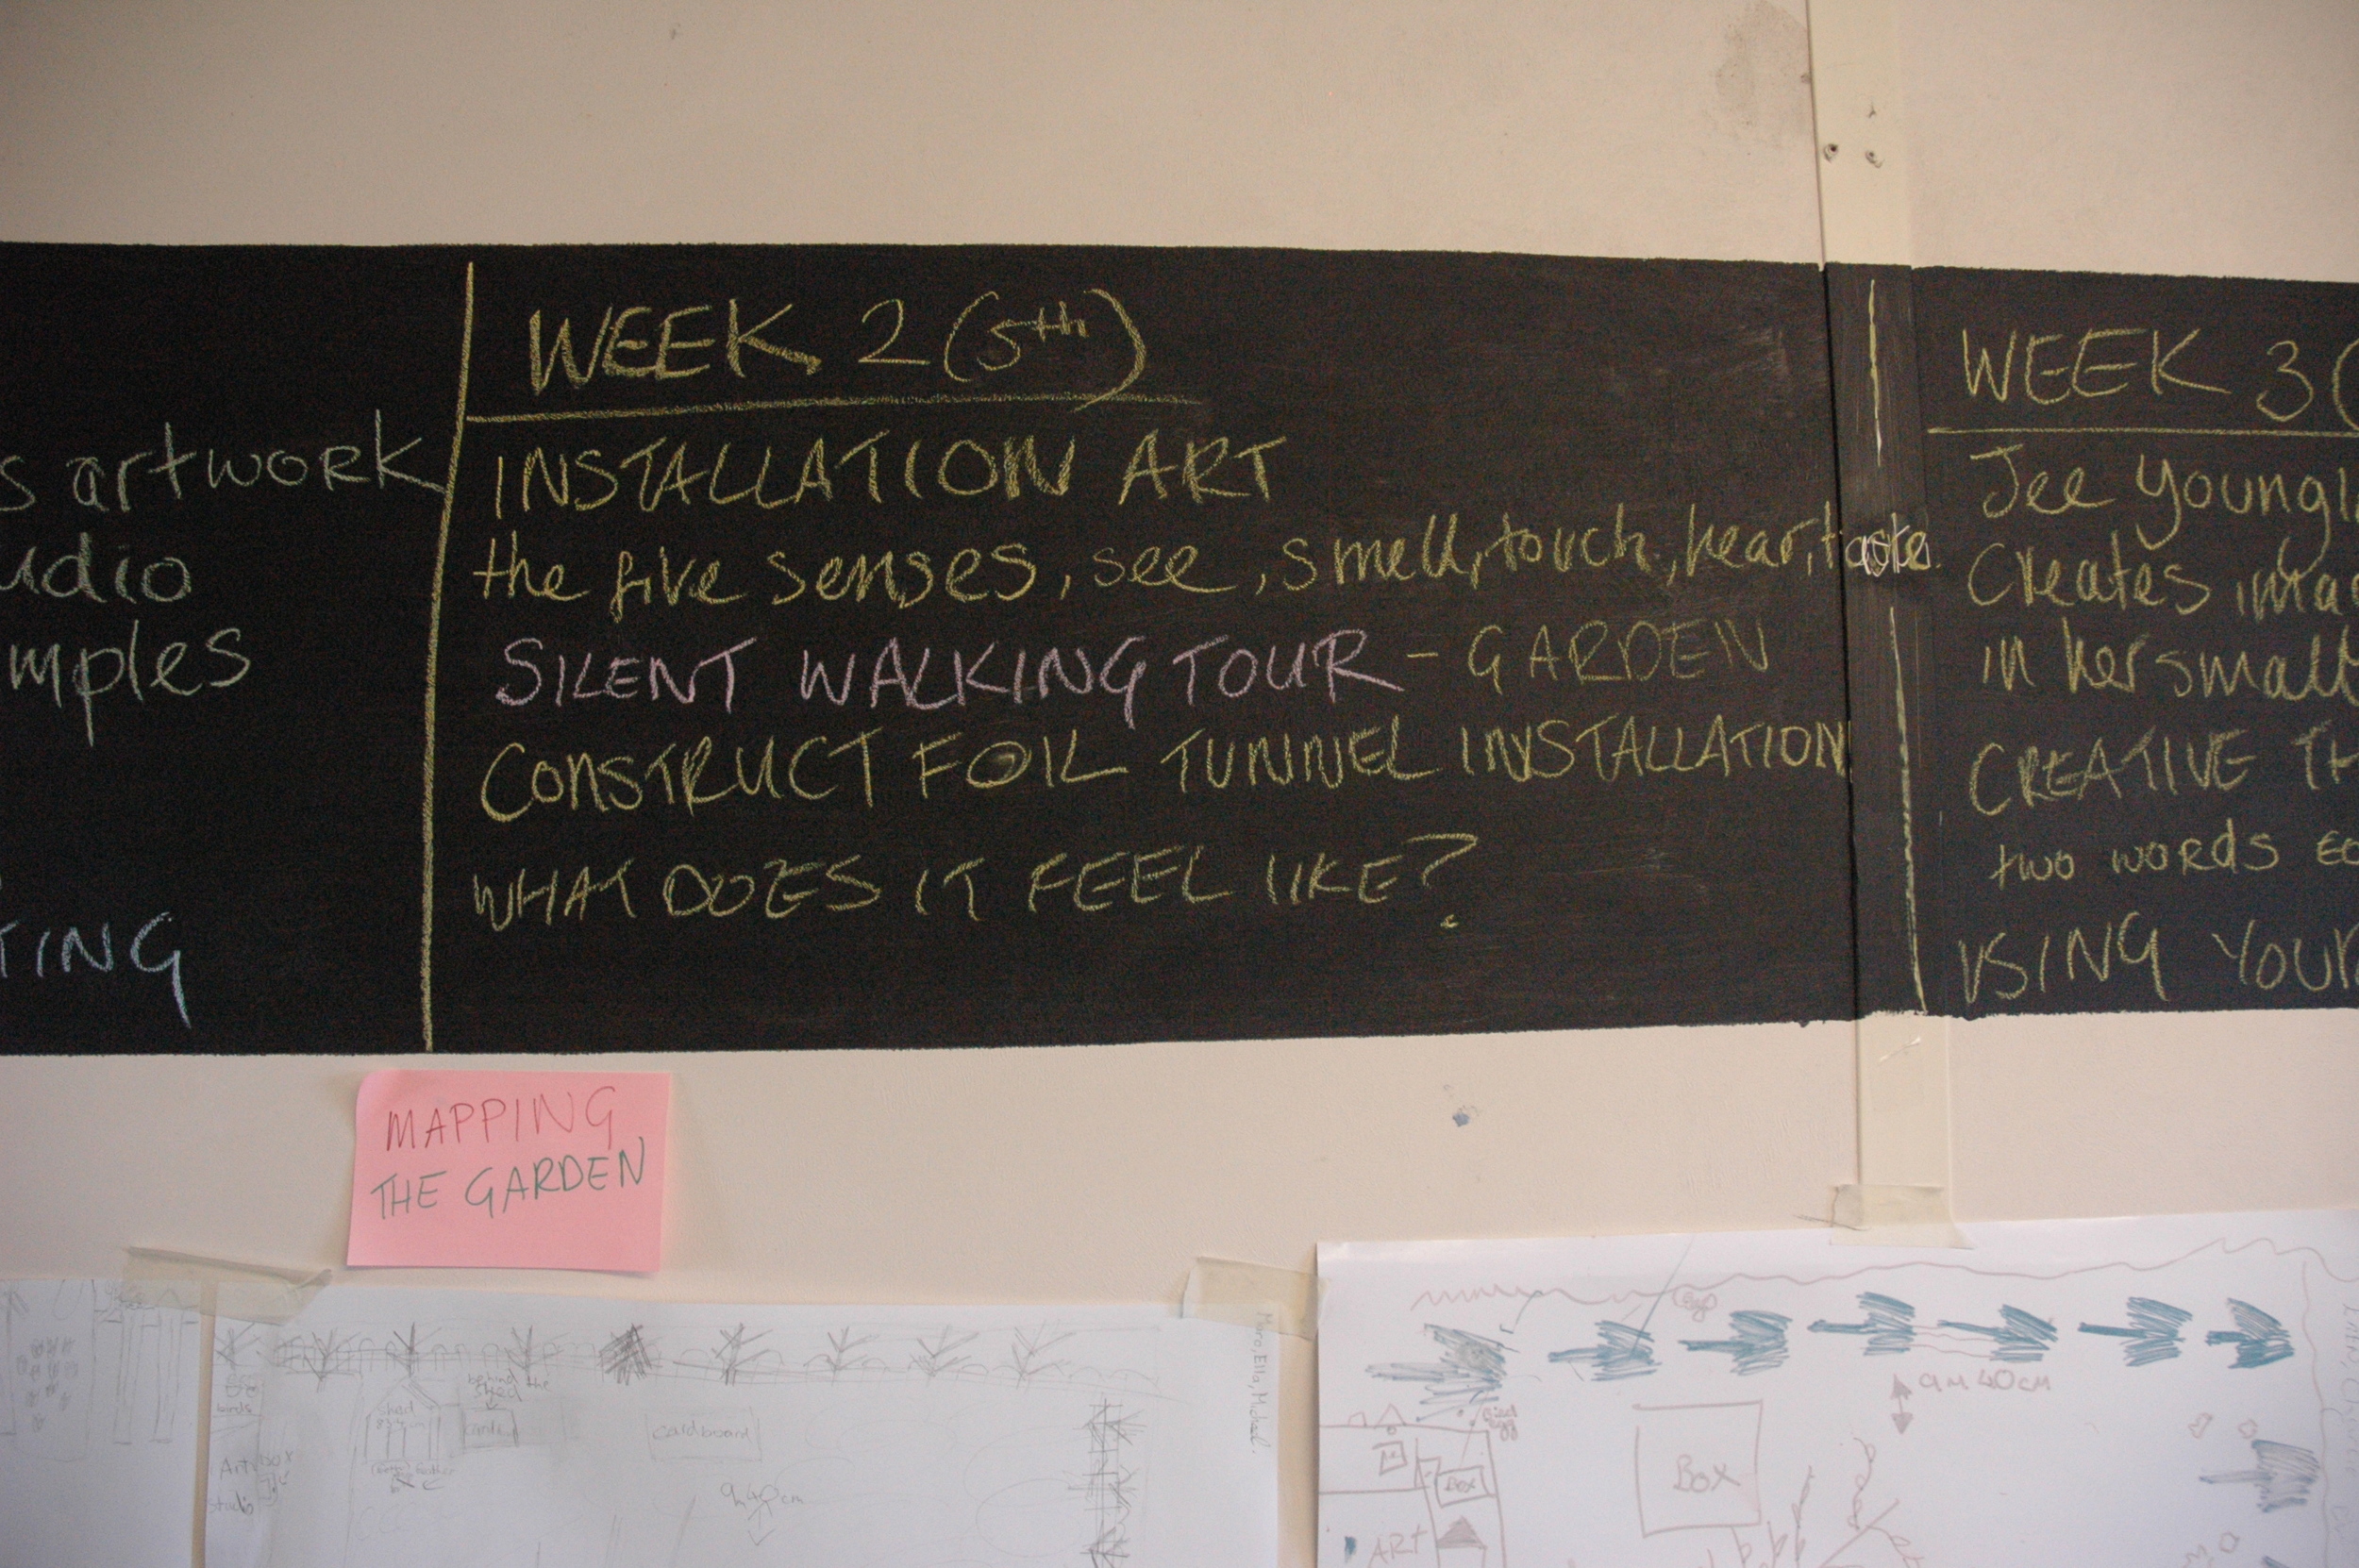 s artwork
udio
mples
TING
WEEK 2 (5th)
INSTALLATION ART
the five senses, see, smell, touch, hear, taste.
SILENT WALKING TOUR - GARDEN
CONSTRUCT FOIL TUNNEL INSTALLATION
WHAT DOES IT FEEL LIKE?
WEEK 3 (
Jee Young
Creates ima
in her small
CREATIVE TH
two words
USING YOUR
MAPPING
THE GARDEN
birds
Art
studio
BOX
shed
behind the
shed
cardboard
9m 40cm
Ella, Michael.
9M 40CM
BOX
BOX
ART